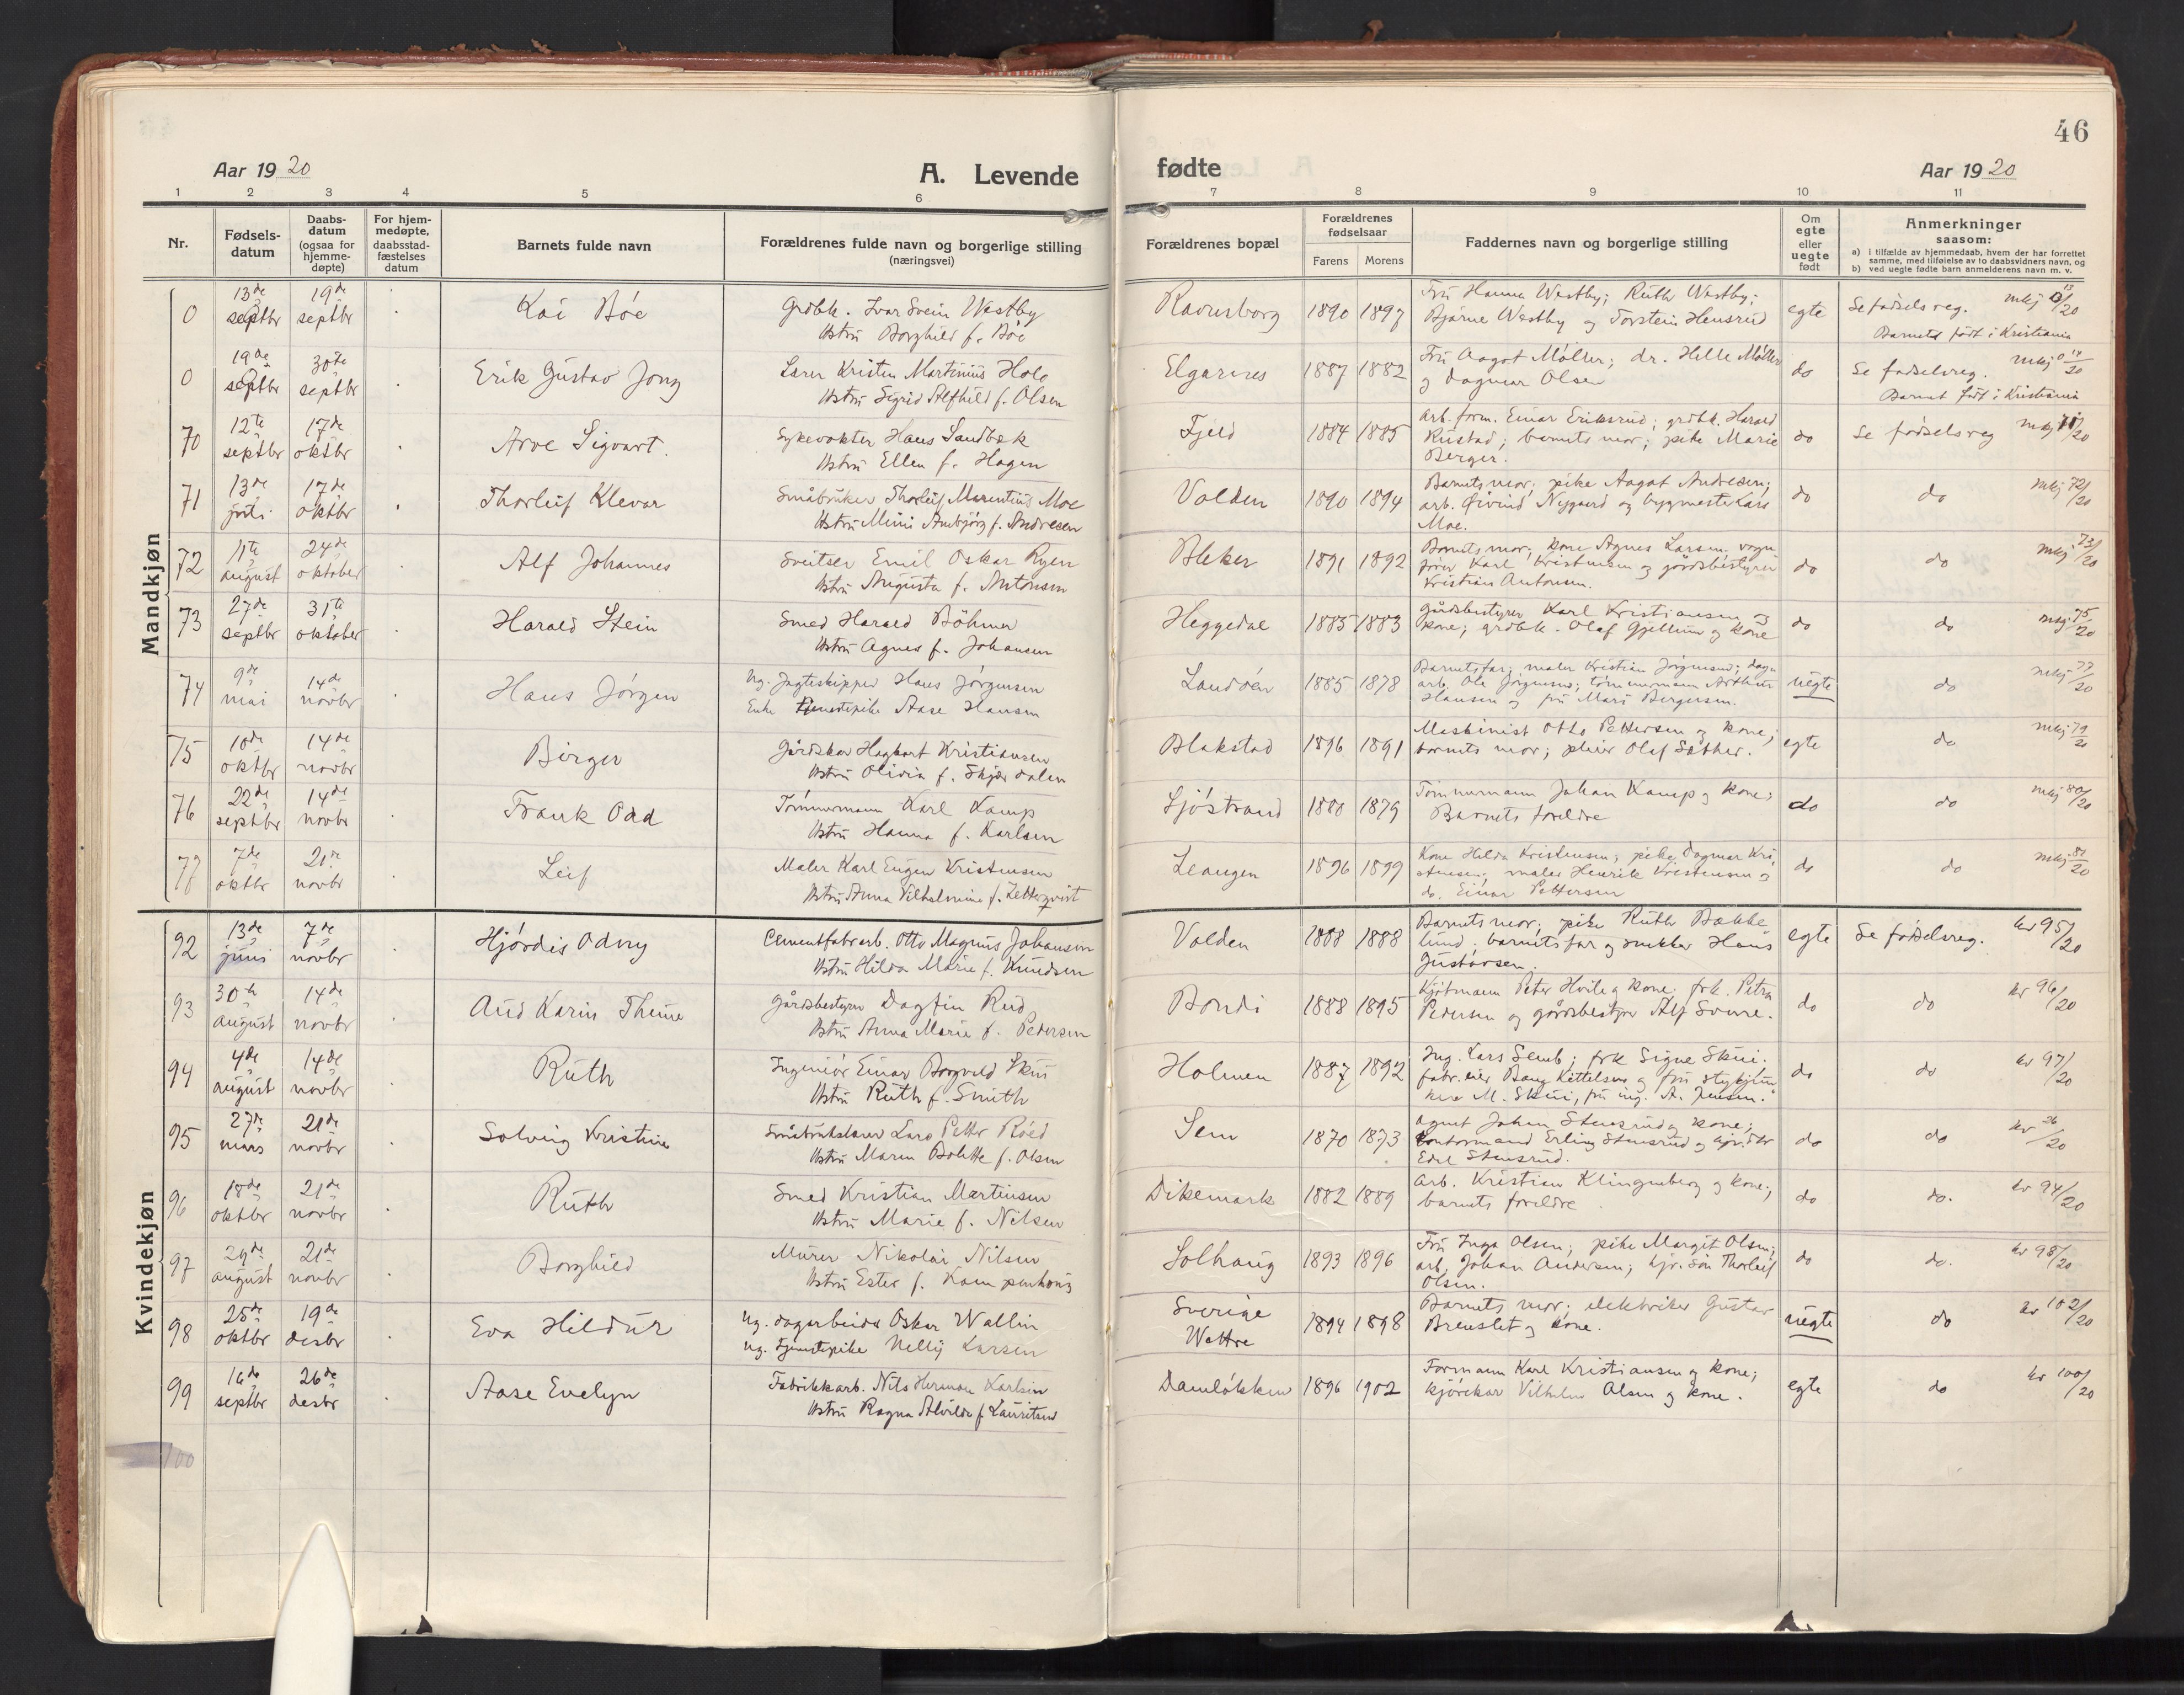 46
Aar 1920
A. Levende
fødte
Aar 1920
1 2 3 4 5 6 7 8 9 10 11
Nr.
Fødsels-
datum
Daabs-
datum
(ogsaa for
hjemme-
døpte)
For hjem-
medøpte,
daabsstad-
fæstelses
datum
Barnets fulde navn
Forældrenes fulde navn og borgerlige stilling
(næringsvei)
Forældrenes bopæl
Forældrenes
fødselsaar
Farens Morens
Faddernes navn og borgerlige stilling
Om
egte
eller
uegte
født
Anmerkninger
saasom:
a) i tilfælde av hjemmedaab, hvem der har forrettet
samme, med tilføielse av to daabsvidners navn, og
b) ved uegte fødte barn anmelderens navn m. v.
Mandkjøn
0 13de septbr 19de septbr Kai Bøe
Grdbk. Ivar Svein Westby
Hstru Borghild f. Bøe
Ravnsborg 1890 1897
Fru Hanna Westby; Ruth Westby;
Bjarne Westby og Torstein Hensrud
egte Se fødselsreg. mkj 13/20
Barnet født i Kristiania
0 19de septbr 30te septbr Erik Gustav Jong
Lærer Kristen Martinius Holo
Hstru Sigrid Alfhild f. Olsen
Elgarnes 1887 1882
Fru Aagot Møller; dr. Helle Møller
og Dagmar Olsen
do Se fødselsreg. mkj 14/20
Barnet født i Kristiania
70 12te septbr 17de oktbr Arve Sigvart.
Sykevokter Hans Sandbæk
Hstru Ellen f. Hagen
Fjeld 1884 1885
Arb. form. Einar Eriksrud; grdbk. Harald
Rustad; barnets mor; pike Marie
Berger.
do Se fødselsreg mkj 71/20
71 13de juli 17de oktbr Thorleif Klevar
Småbruker Thorleif Marentius Moe
Hstru Mimi Ambjørg f. Andresen
Volden 1890 1894
Barnets mor; pike Aagot Andresen;
arb. Øivind Nygaard og bygmester Lars
Moe.
do do mkj 72/20
72 11te august 24de oktober Alf Johannes
Sveitser Emil Oskar Ryen
Hstru Augusta f. Antonsen
Bleker 1891 1892
Barnets mor; kone Agnes Larsen. vogn
fører Karl Kristensen og gårdsbestyrer
Kristian Antonsen.
do do mkj 73/20
73 27de septbr 31te oktober Harald Stein
Smed Harald Böhmer
Hstru Agnes f. Johansen
Heggedal 1885 1883
Gårdsbestyrer Karl Kristiansen og
kone; grdbk. Olaf Gjellum og kone
do do mkj 75/20
74 9de mai 14de novbr Hans Jørgen
Ug. Jagteskipper Hans Jørgensen
Enke tjenestepike Aase Hansen
Landøen 1885 1878
Barnets far; maler Kristian Jørgensen; dagn
arb. Ole Jørgensen; tømmermann Arthur
Hansen og fru Mari Bergersen.
uegte do mkj 77/20
75 10de oktbr 14de novbr Birger
Gårdskar Hagbart Kristiansen
Hstru Olivia f. Skjærdalen
Blakstad 1896 1891
Maskinist Otto Pettersen og kone;
barnets mor; pleier Olaf Sæther.
egte do mkj 79/20
76 22de septbr 14de novbr Frank Odd
Tømmermann Karl Kamp
Hstru Hanna f. Karlsen
Sjøstrand 1880 1879
Tømmermann Johan Kamp og kone;
Barnets foreldre
do do mkj 80/20
77 7de oktbr 21de novbr Leif
Maler Karl Eugen Kristensen
Hstru Anna Vilhelmine f. Zetterqvist
Leangen 1896 1899
Kone Hilda Kristensen; pike Dagmar Kri-
stensen; maler Henrik Kristensen og
do. Einar Pettersen
do do mkj 81/20
Kvindekjøn
92 13de juni 7de novbr Hjørdis Odny
Cementfabrarb. Otto Magnus Johansen
Hstru Hilda Marie f. Knudsen
Volden 1888 1888
Barnets mor; pike Ruth Bække
lund. barnets far og snekker Hans
Gustavsen.
egte Se fødselsreg. kv 95/20
93 30te august 14de novbr Aud Karin Thune
Gårdsbestyrer Dagfin Rud
Hstru Anna Marie f. Pedersen
Bondi 1888 1895
Kjøbmann Peter Hvile og kone. frk. Petra
Pedersen og gårdsbestyrer Alf
do do kv 96/20
94 4de august 14de novbr Ruth
Ingeniør Einar Borgvald Skui
Hstru Ruth f. Smith
Holmen 1887 1892
Ing. Lars Semb; frk Signe Skui.
fabr.eier Bang Kittelsen og fru
M. Skui, fru ing. A. Jensen.
do do kv 97/20
95 27de mars 21de novbr Solveig Kristine
Småbrukslærer Lars Petter Røed
Hstru Maren Bolette f. Olsen
Sem 1870 1873
Agent Johan Stensrud og kone;
kontormand Erling Stensrud og hjv.dtr
Edel Stensrud.
do do kv 26/20
96 18de oktbr 21de novbr Ruth
Smed Kristian Martinsen
Hstru Marie f. Nilsen
Dikemark 1882 1889
Arb. Kristian Klingenberg og kone;
barnets foreldre
do do. kv 94/20
97 29de august 21de novbr Borghild
Murer Nikolai Nilsen
Hstru Ester f. Kampenhaug
Solhaug 1893 1896
Fru Inga Olsen; pike Margit Olsen;
arb. Johan Andersen; hjv. søn Thorleif
Olsen.
do do. kv 98/20
98 25de oktbr 19de desbr Eva Hildur
Ug. dagarbeider Oskar Wallin
Ug. tjenestepike Nelly Larsen
Sverige
Wettre
1894 1898
Barnets mor; elektriker Gustav
Brenslet og kone.
uegte do kv 102/20
99 16de septbr 26de desbr Aase Evelyn
Fabrikkarb. Nils Herman Karlsen
Hstru Ragna Alvilde f. Lauritsen
Damløkken 1896 1902
Formann Karl Kristiansen og kone;
kjørekar Vilhelm Olsen og kone.
egte do kv 100/20
100